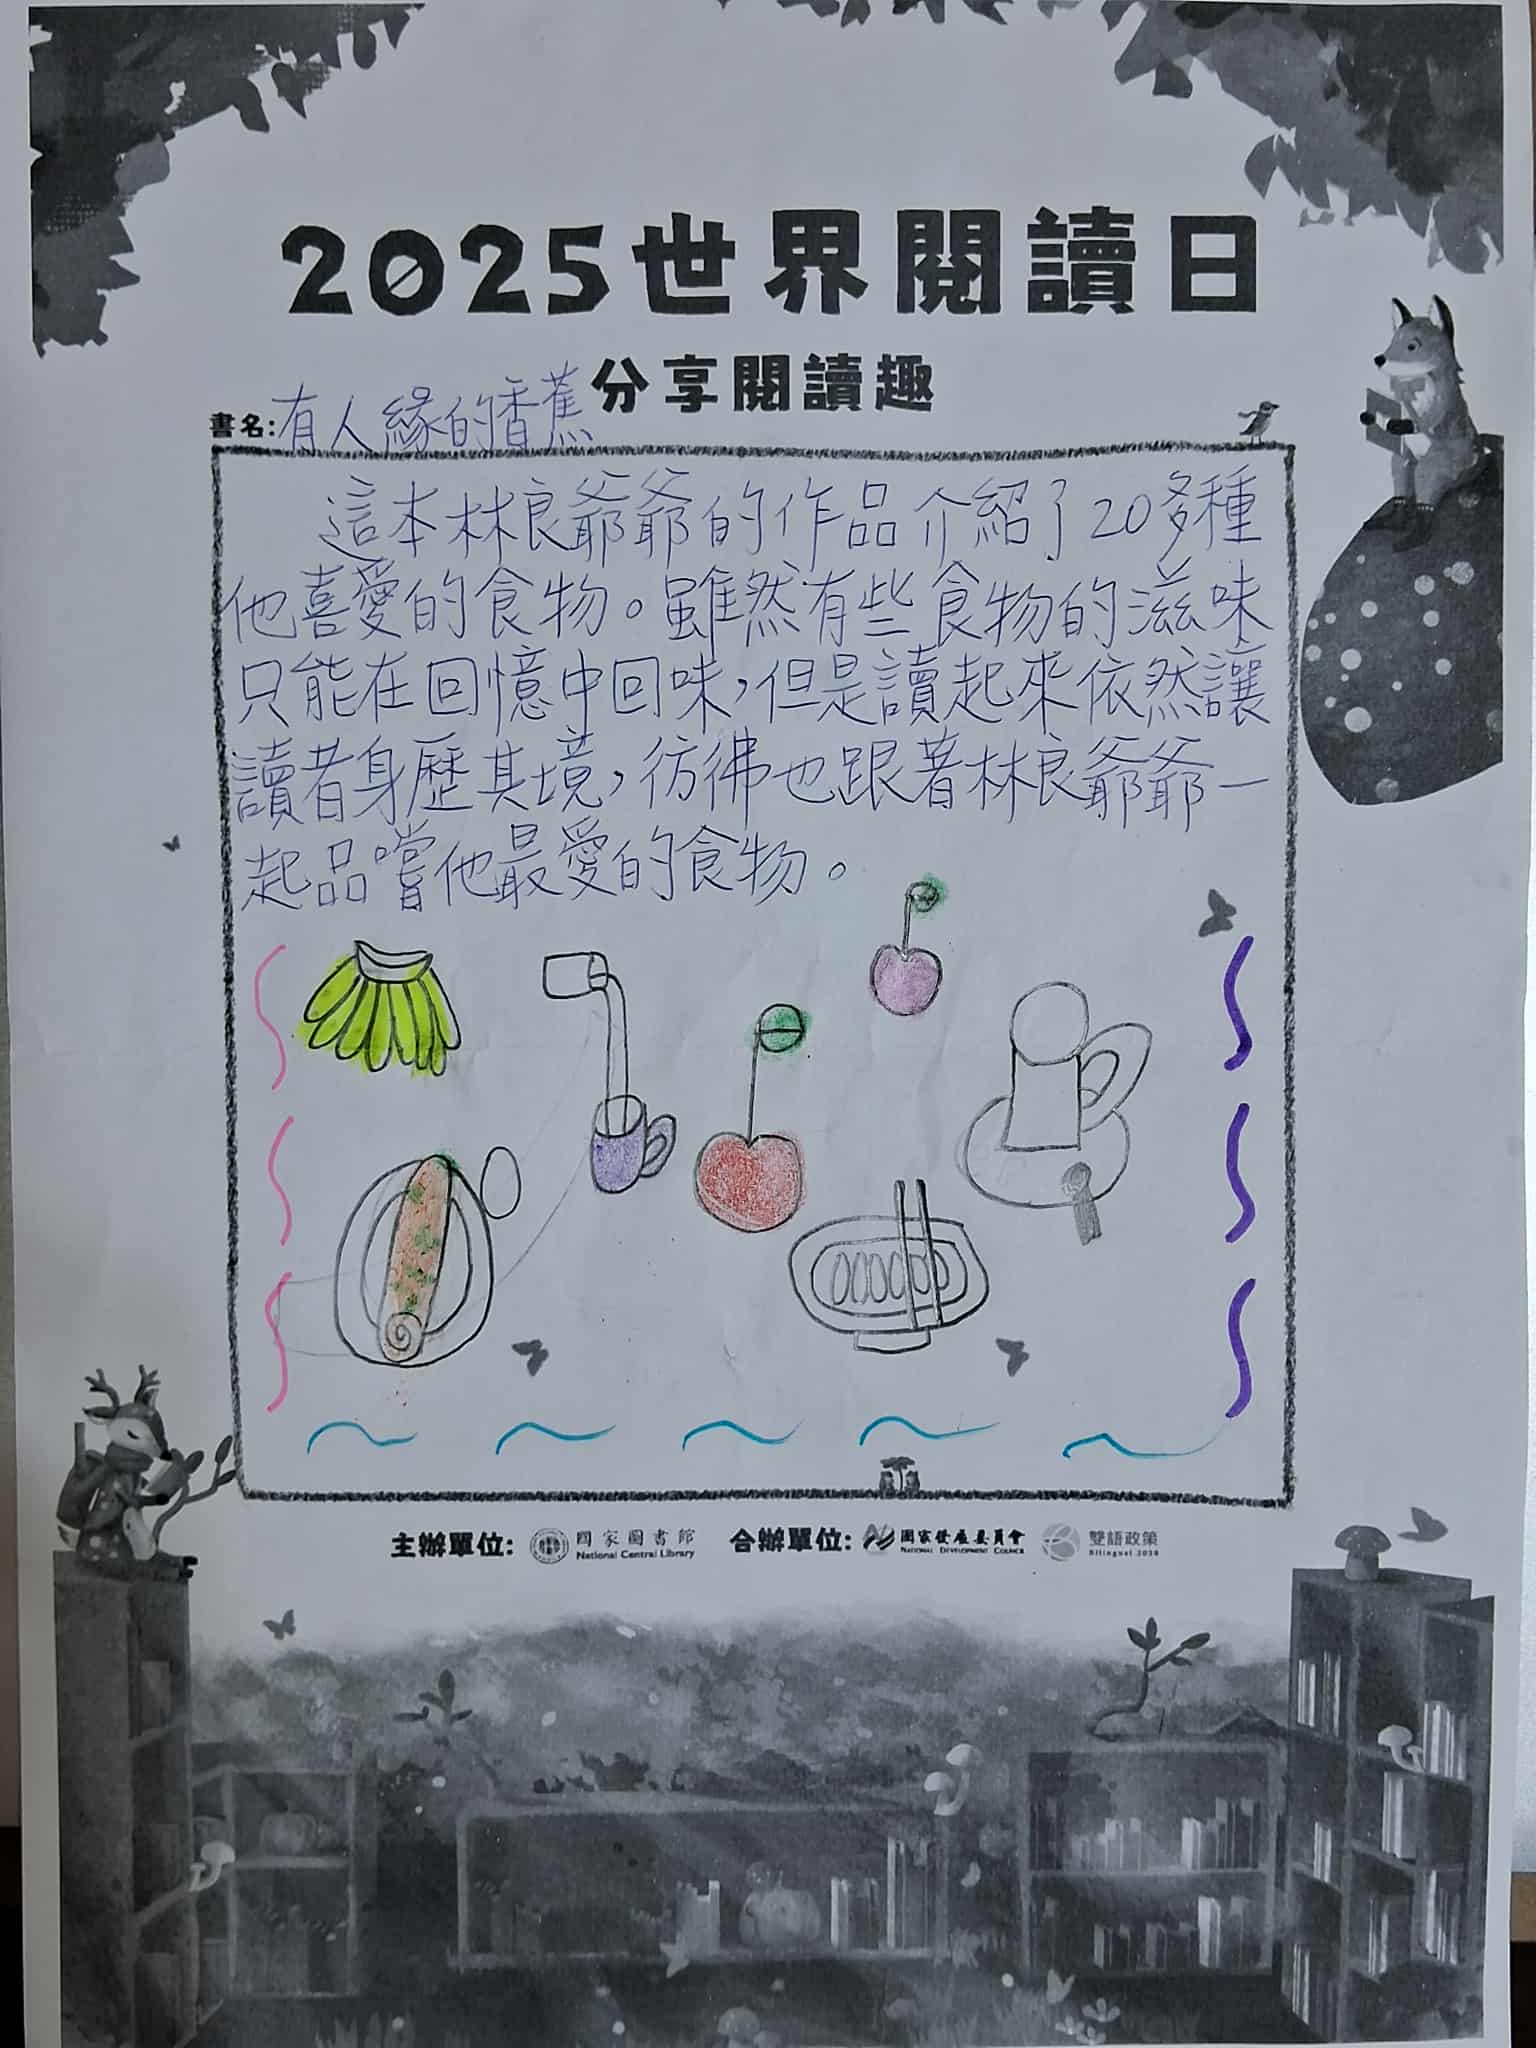 2025世界閱讀日
分享閱讀趣
書名:有人緣的香蕉
這本林良爺爺的作品介紹了20多種
他喜愛的食物。雖然有些食物的滋味
只能在回憶中回味,但是讀起來依然讓
讀者身歷其境,彷彿也跟著林良爺爺一
起品嚐他最愛的食物。
主辦單位: 國家圖書館 National Central Library 合辦單位: 國家發展委員會 National Development Council 雙語政策 Bilingual 2030